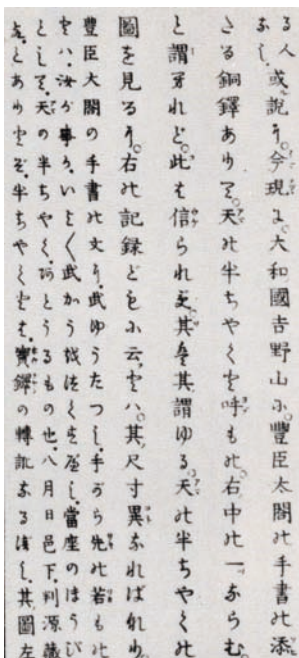 る人なし。或説に。今現に。大和國吉野山に。豐臣太閤の手書の添
たる銅鐸ありて。天の半ちやくと呼もの。右中の一ならむ。
と謂れど。此も信られず。其は其謂ゆる。天の半ちやくの
圖を見るに。右の記録どもに云とハ。其尺寸異なればなり。
豐臣大閤の手書の文に。武ゆうたつし。手づら先の若もの
とハ。汝が事か。いよ〳〵武かう城法くを屋し。當座のほうび
として。天の半ちやく。 とうるもの也。八月日邑下。判源藏
とありとぞ。半ちやくとは。寶鐸の轉訛なるべし。其圖左